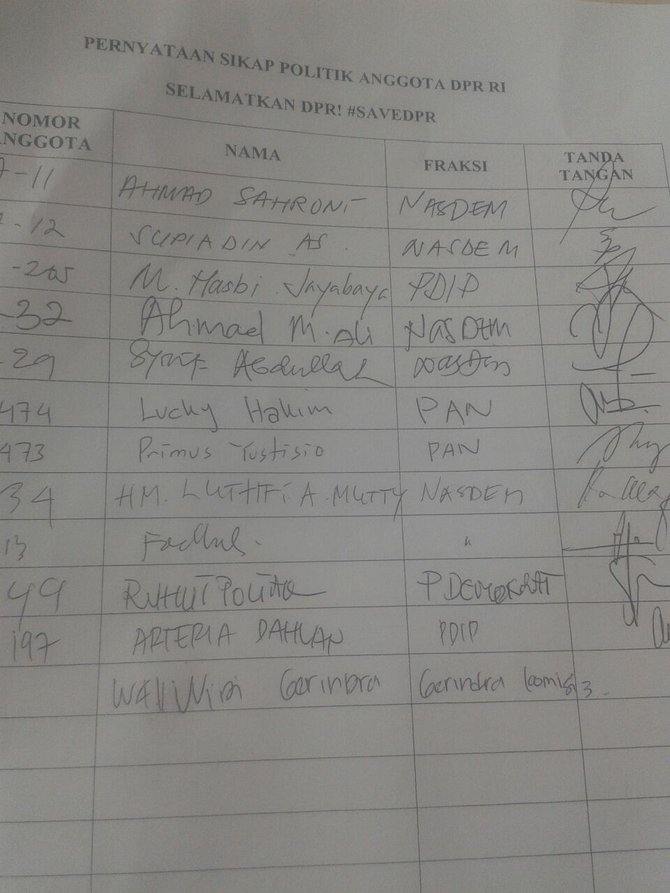 PERNYATAAN SIKAP POLITIK ANGGOTA DPR RI
SELAMATKAN DPR! #SAVEDPR
NOMOR ANGGOTA NAMA FRAKSI TANDA TANGAN
-11 AHMAD SAHRONI NASDEM
-12 SUPIADIN AS. NASDEM
-205 M. Hasbi Jayabaya PDIP
-32 Ahmad M. Ali NASDEM
29 Syarif Abdullah NasDem
474 Lucky Hakim PAN
473 Primus Yustisio PAN
34 HM. LUTHFI A. MUTTY NASDEM
13 Fadhul. "
49 RUHUT POLTAK P DEMOKRAT
197 ARTERIA DAHLAN PDIP
Gerindra Gerindra komisi 3.